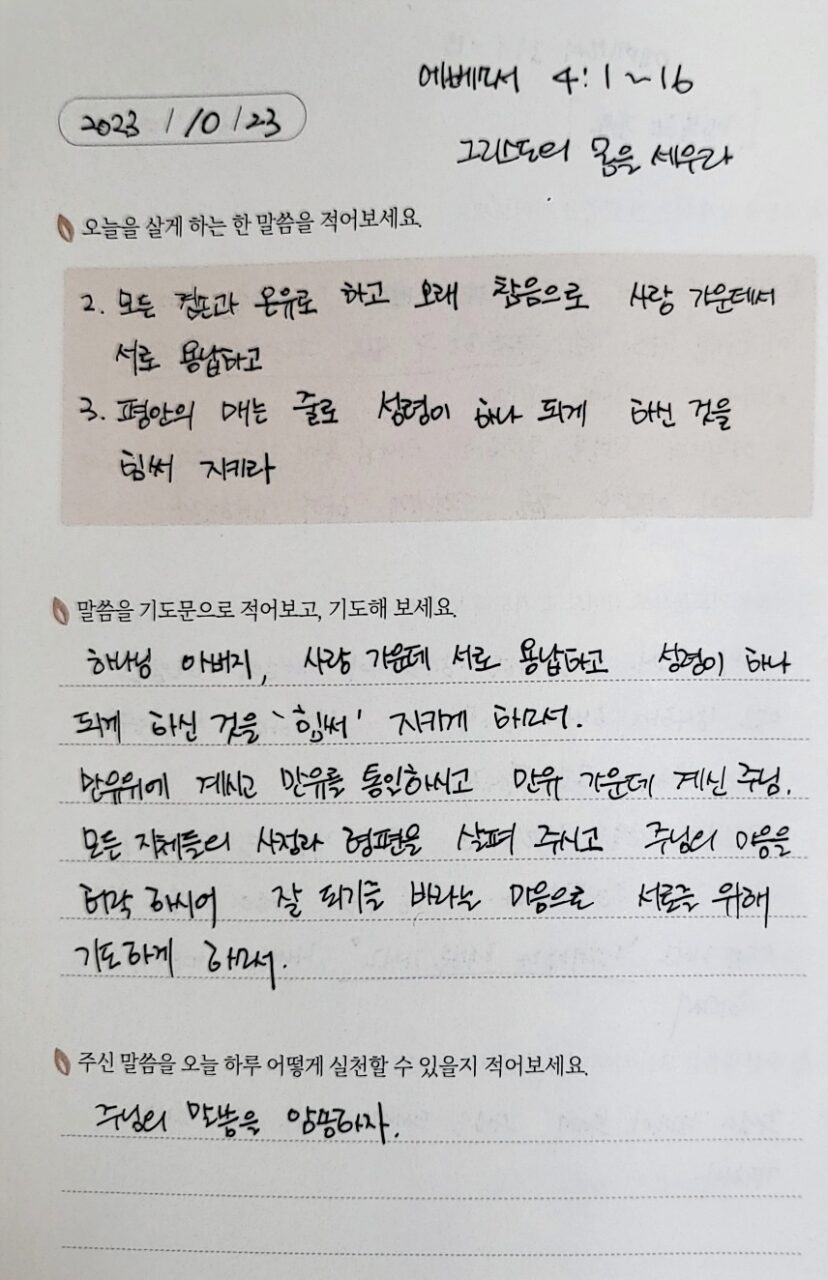 에베소서 4:1~16
2023 / 10 / 23
그리스도의 몸을 세우라
오늘을 살게 하는 한 말씀을 적어보세요.
2. 모든 겸손과 온유로 하고 오래 참음으로 사랑 가운데서
서로 용납하고
3. 평안의 매는 줄로 성령이 하나 되게 하신 것을
힘써 지키라
말씀을 기도문으로 적어보고, 기도해 보세요.
하나님 아버지, 사랑 가운데 서로 용납하고 성령이 하나
되게 하신 것을 '힘써' 지키게 하소서.
만유위에 계시고 만유를 통일하시고 만유 가운데 계신 주님.
모든 지체들의 사정과 형편을 살펴 주시고 주님의 마음을
허락 하시어 잘 되기를 바라는 마음으로 서로를 위해
기도하게 하소서.
주신 말씀을 오늘 하루 어떻게 실천할 수 있을지 적어보세요.
주님의 말씀을 암송하자.